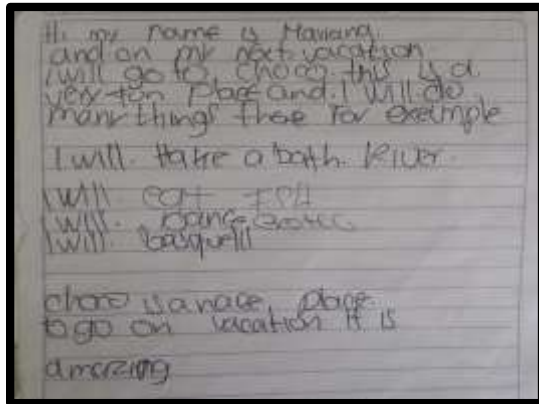 Hi my name is Mariana
and on my next vacation
i will go to choco this is a
very fun place and I will do
many things there for example
I will. take a bath River.
I will eat FSH
I will. Dance
I will.
choco is a nace place
to go on vacation it is
amazing